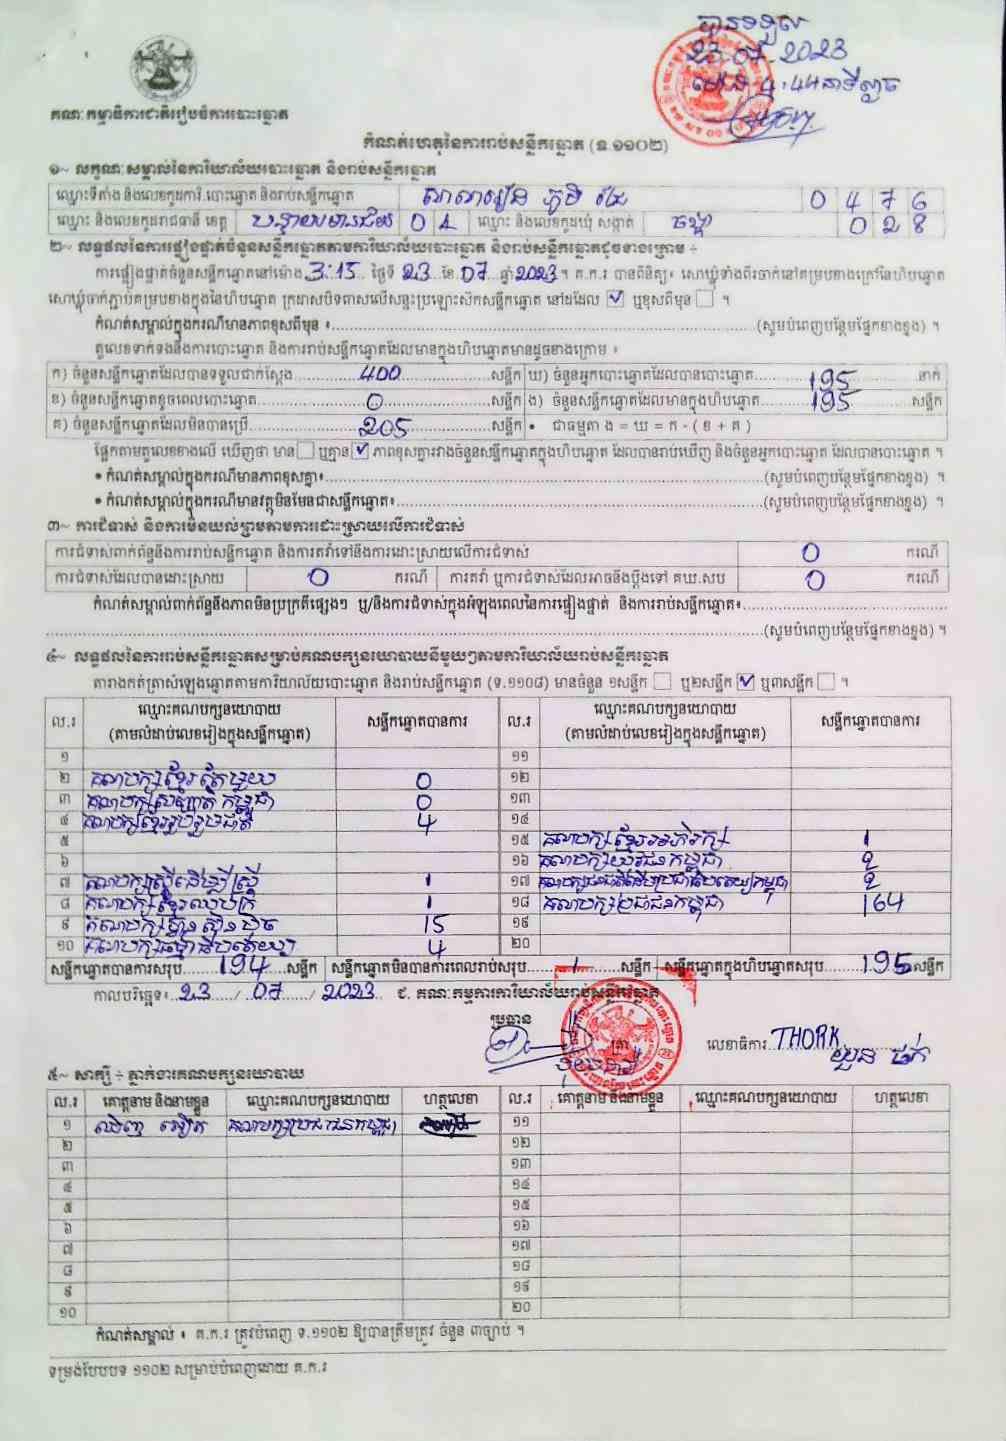 បានទទួល
23-07-2023
ម៉ោង 4:44 នាទីល្ងាច
គណៈកម្មាធិការជាតិរៀបចំការបោះឆ្នោត
កំណត់ហេតុនៃការរាប់សន្លឹកឆ្នោត (ទ.១១០២)
១~ លក្ខណៈសម្គាល់នៃការិយាល័យបោះឆ្នោត និងរាប់សន្លឹកឆ្នោត
ឈ្មោះទីតាំង និងលេខកូដការិ.បោះឆ្នោត និងរាប់សន្លឹកឆ្នោត សាលារៀន ភូមិ 0 4 7 6
ឈ្មោះ និងលេខកូដរាជធានី ខេត្ត បន្ទាយមានជ័យ 0 1 ឈ្មោះ និងលេខកូដឃុំ សង្កាត់ 0 2 8
២~ លទ្ធផលនៃការផ្ទៀងផ្ទាត់ចំនួនសន្លឹកឆ្នោតតាមការិយាល័យបោះឆ្នោត និងរាប់សន្លឹកឆ្នោតដូចខាងក្រោម ៖
ការផ្ទៀងផ្ទាត់ចំនួនសន្លឹកឆ្នោតនៅម៉ោង 3:15 ថ្ងៃទី 23 ខែ 07 ឆ្នាំ 2023 ។ គ.ក.រ បានពិនិត្យ៖ សោឃ្លុំទាំងពីរចាក់នៅគម្របខាងក្រៅនៃហិបឆ្នោត
សោឃ្លុំចាក់ភ្ជាប់គម្របខាងក្នុងនៃហិបឆ្នោត ក្រដាសបិទពាសលើសន្ទះប្រឡោះសៀកសន្លឹកឆ្នោត នៅដដែល ☑ ឬខុសពីមុន ☐ ។
កំណត់សម្គាល់ក្នុងករណីមានភាពខុសពីមុន ៖ (សូមបំពេញបន្ថែមផ្នែកខាងខ្នង) ។
តួលេខទាក់ទងនឹងការបោះឆ្នោត និងការរាប់សន្លឹកឆ្នោតដែលមានក្នុងហិបឆ្នោតមានដូចខាងក្រោម ៖
ក) ចំនួនសន្លឹកឆ្នោតដែលបានទទួលជាក់ស្តែង 400 សន្លឹក ឃ) ចំនួនអ្នកបោះឆ្នោតដែលបានបោះឆ្នោត 195 នាក់
ខ) ចំនួនសន្លឹកឆ្នោតខូចពេលបោះឆ្នោត 0 សន្លឹក ង) ចំនួនសន្លឹកឆ្នោតដែលមានក្នុងហិបឆ្នោត 195 សន្លឹក
គ) ចំនួនសន្លឹកឆ្នោតដែលមិនបានប្រើ 205 សន្លឹក • ជាធម្មតា ង = ឃ = ក - ( ខ + គ )
ផ្អែកតាមតួលេខខាងលើ ឃើញថា មាន ☐ ឬគ្មាន ☑ ភាពខុសគ្នារវាងចំនួនសន្លឹកឆ្នោតក្នុងហិបឆ្នោត ដែលបានរាប់ឃើញ និងចំនួនអ្នកបោះឆ្នោត ដែលបានបោះឆ្នោត ។
• កំណត់សម្គាល់ក្នុងករណីមានភាពខុសគ្នា៖ (សូមបំពេញបន្ថែមផ្នែកខាងខ្នង) ។
• កំណត់សម្គាល់ក្នុងករណីមានវត្ថុមិនមែនជាសន្លឹកឆ្នោត៖ (សូមបំពេញបន្ថែមផ្នែកខាងខ្នង) ។
៣~ ការជំទាស់ និងការមិនយល់ព្រមតាមការដោះស្រាយលើការជំទាស់
ការជំទាស់ពាក់ព័ន្ធនឹងការរាប់សន្លឹកឆ្នោត និងការតវ៉ាទៅនឹងការដោះស្រាយលើការជំទាស់ 0 ករណី
ការជំទាស់ដែលបានដោះស្រាយ 0 ករណី ការតវ៉ា ឬការជំទាស់ដែលអាចនឹងប្តឹងទៅ គឃ.សប 0 ករណី
កំណត់សម្គាល់ពាក់ព័ន្ធនឹងភាពមិនប្រក្រតីផ្សេងៗ ឬ/និងការជំទាស់ក្នុងអំឡុងពេលនៃការផ្ទៀងផ្ទាត់ និងការរាប់សន្លឹកឆ្នោត៖
(សូមបំពេញបន្ថែមផ្នែកខាងខ្នង) ។
៤~ លទ្ធផលនៃការរាប់សន្លឹកឆ្នោតសម្រាប់គណបក្សនយោបាយនីមួយៗតាមការិយាល័យរាប់សន្លឹកឆ្នោត
តារាងកត់ត្រាសំឡេងឆ្នោតតាមការិយាល័យបោះឆ្នោត និងរាប់សន្លឹកឆ្នោត (ទ.១១០៨) មានចំនួន ១សន្លឹក ☐ ឬ២សន្លឹក ☑ ឬ៣សន្លឹក ☐ ។
ល.រ ឈ្មោះគណបក្សនយោបាយ (តាមលំដាប់លេខរៀងក្នុងសន្លឹកឆ្នោត) សន្លឹកឆ្នោតបានការ ល.រ ឈ្មោះគណបក្សនយោបាយ (តាមលំដាប់លេខរៀងក្នុងសន្លឹកឆ្នោត) សន្លឹកឆ្នោតបានការ
១ ១១
២ គណបក្សខ្មែរតែមួយ 0 ១២
៣ គណបក្សសញ្ជាតិកម្ពុជា 0 ១៣
៤ គណបក្សខ្មែររួបរួមជាតិ 4 ១៤
៥ ១៥ គណបក្សខ្មែរអភិរក្ស 1
៦ ១៦ គណបក្សយុវជនកម្ពុជា 2
៧ គណបក្សស្ត្រីដើម្បីស្ត្រី 1 ១៧ គណបក្សជនជាតិដើមប្រជាធិបតេយ្យកម្ពុជា 2
៨ គណបក្សខ្មែរឈប់ក្រ 1 ១៨ គណបក្សប្រជាជនកម្ពុជា 164
៩ គណបក្សហ្វ៊ុនស៊ិនប៉ិច 15 ១៩
១០ គណបក្សធម្មាធិបតេយ្យ 4 ២០
សន្លឹកឆ្នោតបានការសរុប 194 សន្លឹក សន្លឹកឆ្នោតមិនបានការពេលរាប់សរុប 1 សន្លឹក សន្លឹកឆ្នោតក្នុងហិបឆ្នោតសរុប 195 សន្លឹក
កាលបរិច្ឆេទ៖ 23 / 07 / 2023 ជ. គណៈកម្មការការិយាល័យរាប់សន្លឹកឆ្នោត
ប្រធាន
ត្រា
លេខាធិការ THORK
យួន ថក់
៥~ សាក្សី ÷ ភ្នាក់ងារគណបក្សនយោបាយ
ល.រ គោត្តនាម និងនាមខ្លួន ឈ្មោះគណបក្សនយោបាយ ហត្ថលេខា ល.រ គោត្តនាម និងនាមខ្លួន ឈ្មោះគណបក្សនយោបាយ ហត្ថលេខា
១ គណបក្សប្រជាជនកម្ពុជា ១១
២ ១២
៣ ១៣
៤ ១៤
៥ ១៥
៦ ១៦
៧ ១៧
៨ ១៨
៩ ១៩
១០ ២០
កំណត់សម្គាល់ ៖ គ.ក.រ ត្រូវបំពេញ ទ.១១០២ ឱ្យបានត្រឹមត្រូវ ចំនួន ៣ច្បាប់ ។
ទម្រង់បែបបទ ១១០២ សម្រាប់បំពេញដោយ គ.ក.រ